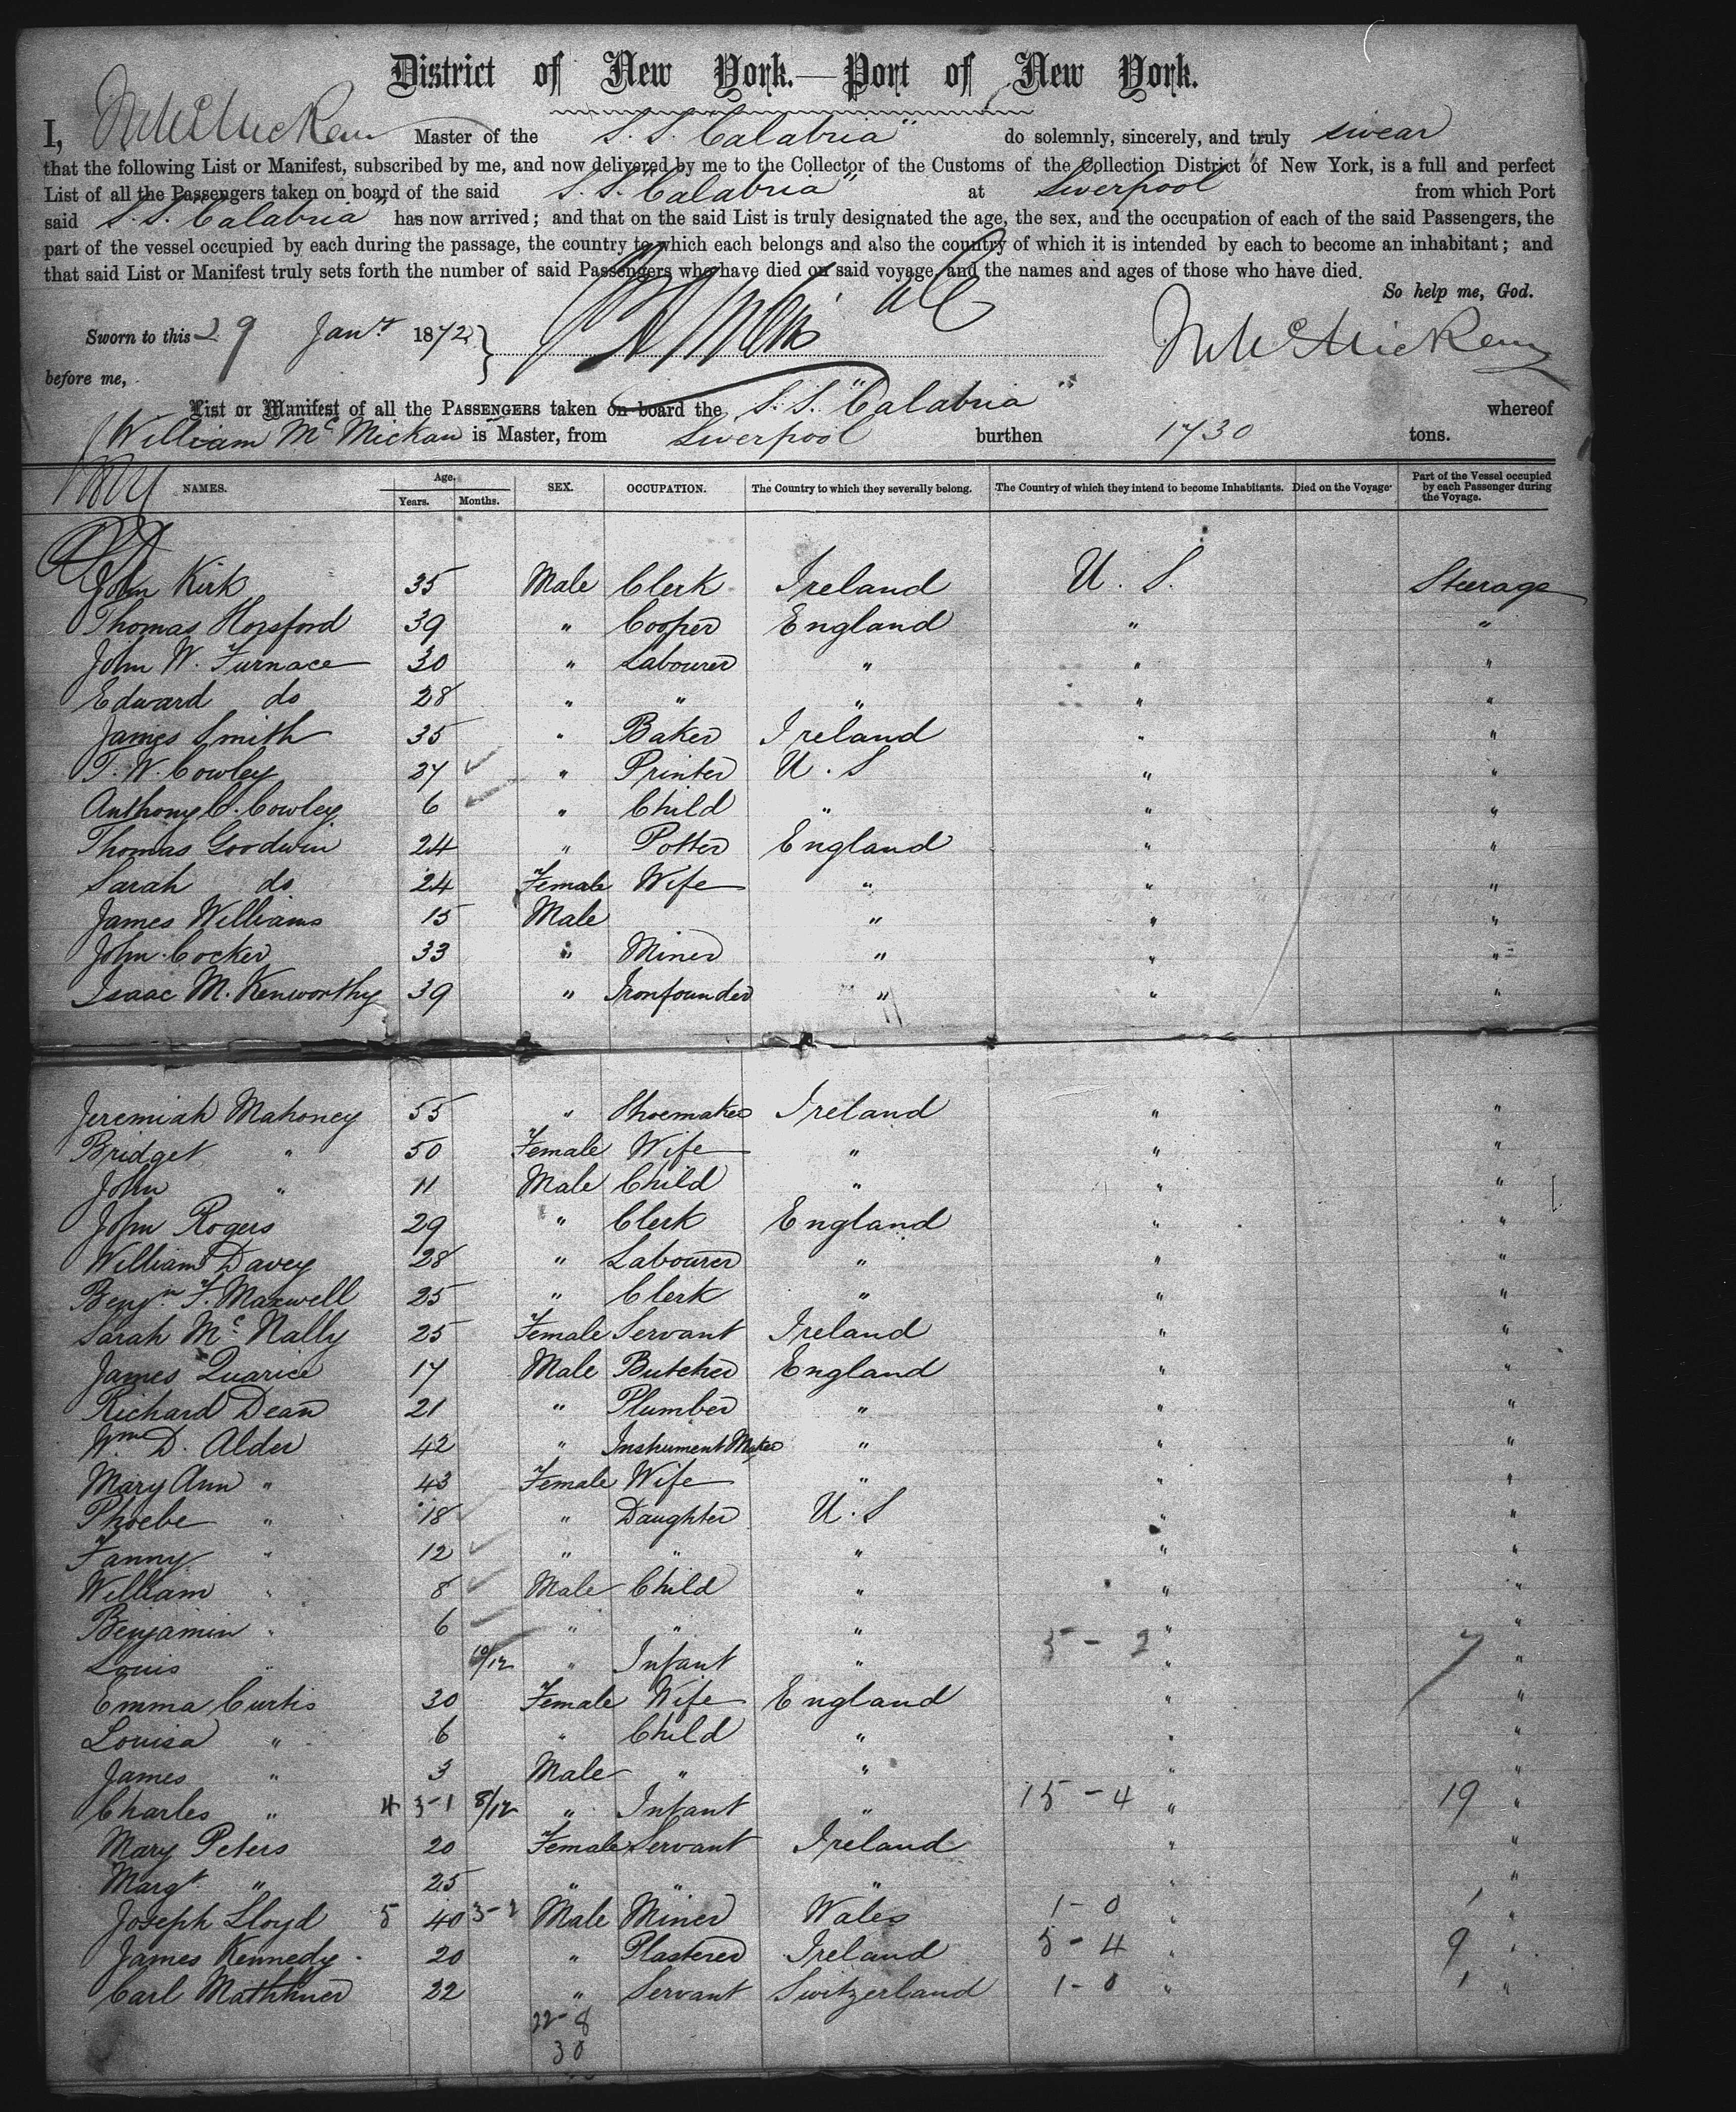 District of New York.—Port of New York.
I, Master of the S. S. "Calabria" do solemnly, sincerely, and truly swear
that the following List or Manifest, subscribed by me, and now delivered by me to the Collector of the Customs of the Collection District of New York, is a full and perfect
List of all the Passengers taken on board of the said S. S. "Calabria" at Liverpool from which Port
said S. S. "Calabria" has now arrived; and that on the said List is truly designated the age, the sex, and the occupation of each of the said Passengers, the
part of the vessel occupied by each during the passage, the country to which each belongs and also the country of which it is intended by each to become an inhabitant; and
that said List or Manifest truly sets forth the number of said Passengers who have died on said voyage, and the names and ages of those who have died.
So help me, God.
Sworn to this 29 Jany 1872
before me,
List or Manifest of all the PASSENGERS taken on board the S. S. "Calabria" whereof
William McMickan is Master, from Liverpool burthen 1730 tons.
NAMES. Age. Years. Months. SEX. OCCUPATION. The Country to which they severally belong. The Country of which they intend to become Inhabitants. Died on the Voyage. Part of the Vessel occupied by each Passenger during the Voyage.
John Kirk 35 Male Clerk Ireland U. S. Steerage
Thomas Horsford 39 " Cooper England " "
John W. Furnace 30 " Labourer " " "
Edward do 28 " " " " "
James Smith 35 " Baker Ireland " "
T. W. Cowley 27 " Printer U. S " "
Anthony C. Cowley 6 " Child " " "
Thomas Goodwin 24 " Potter England " "
Sarah do 24 Female Wife " " "
James Williams 15 Male " " "
John Cocker 33 " Miner " " "
Isaac M. Kenworthy 39 " Ironfounder " " "
Jeremiah Mahoney 55 " Shoemaker Ireland " "
Bridget " 50 Female Wife " " "
John " 11 Male Child " " "
John Rogers 29 " Clerk England " "
William Davey 28 " Labourer " " "
Benjn. F. Maxwell 25 " Clerk " " "
Sarah McNally 25 Female Servant Ireland " "
James Quarice 17 Male Butcher England " "
Richard Dean 21 " Plumber " " "
Wm D. Alder 42 " Instrument Maker " " "
Mary Ann " 43 Female Wife " " "
Phoebe " 18 " Daughter U. S " "
Fanny " 12 " " " " "
William " 8 Male Child " " "
Benjamin " 6 " " " " "
Louis " 10/12 " Infant " 5 - 2 " 7 "
Emma Curtis 30 Female Wife England " "
Louisa " 6 " Child " " "
James " 3 Male " " " "
Charles " 4 3-1 8/12 " Infant " 15 - 4 " 19 "
Mary Peters 20 Female Servant Ireland " "
Margt. " 25 " " " " "
Joseph Lloyd 5 40 3-2 Male Miner Wales 1 - 0 " 1 "
James Kennedy 20 " Plasterer Ireland 5 - 4 " 9 "
Carl Mathhner 22 " Servant Switzerland 1 - 0 " 1 "
22 - 8
30